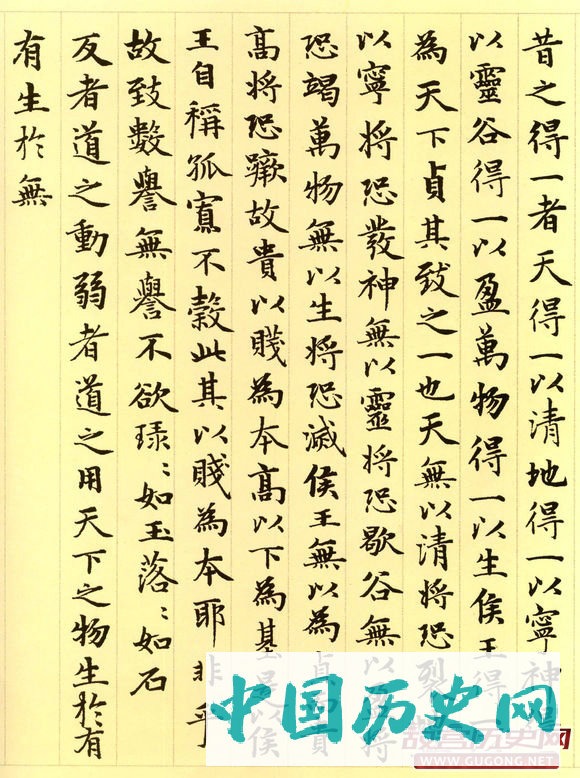 昔之得一者天得一以清地得一以寧神
以靈谷得一以盈萬物得一以生侯王得
為天下貞其致之一也天無以清將恐裂
以寧將恐發神無以靈將恐歇谷無以盈將
恐竭萬物無以生將恐滅侯王無以為貞而貴
高將恐蹶故貴以賤為本高以下為基是以侯
王自稱孤寡不穀此其以賤為本耶非乎
故致數譽無譽不欲琭:如玉落:如石
反者道之動弱者道之用天下之物生於有
有生於無
中国历史网
WWW.GUGONG.NET